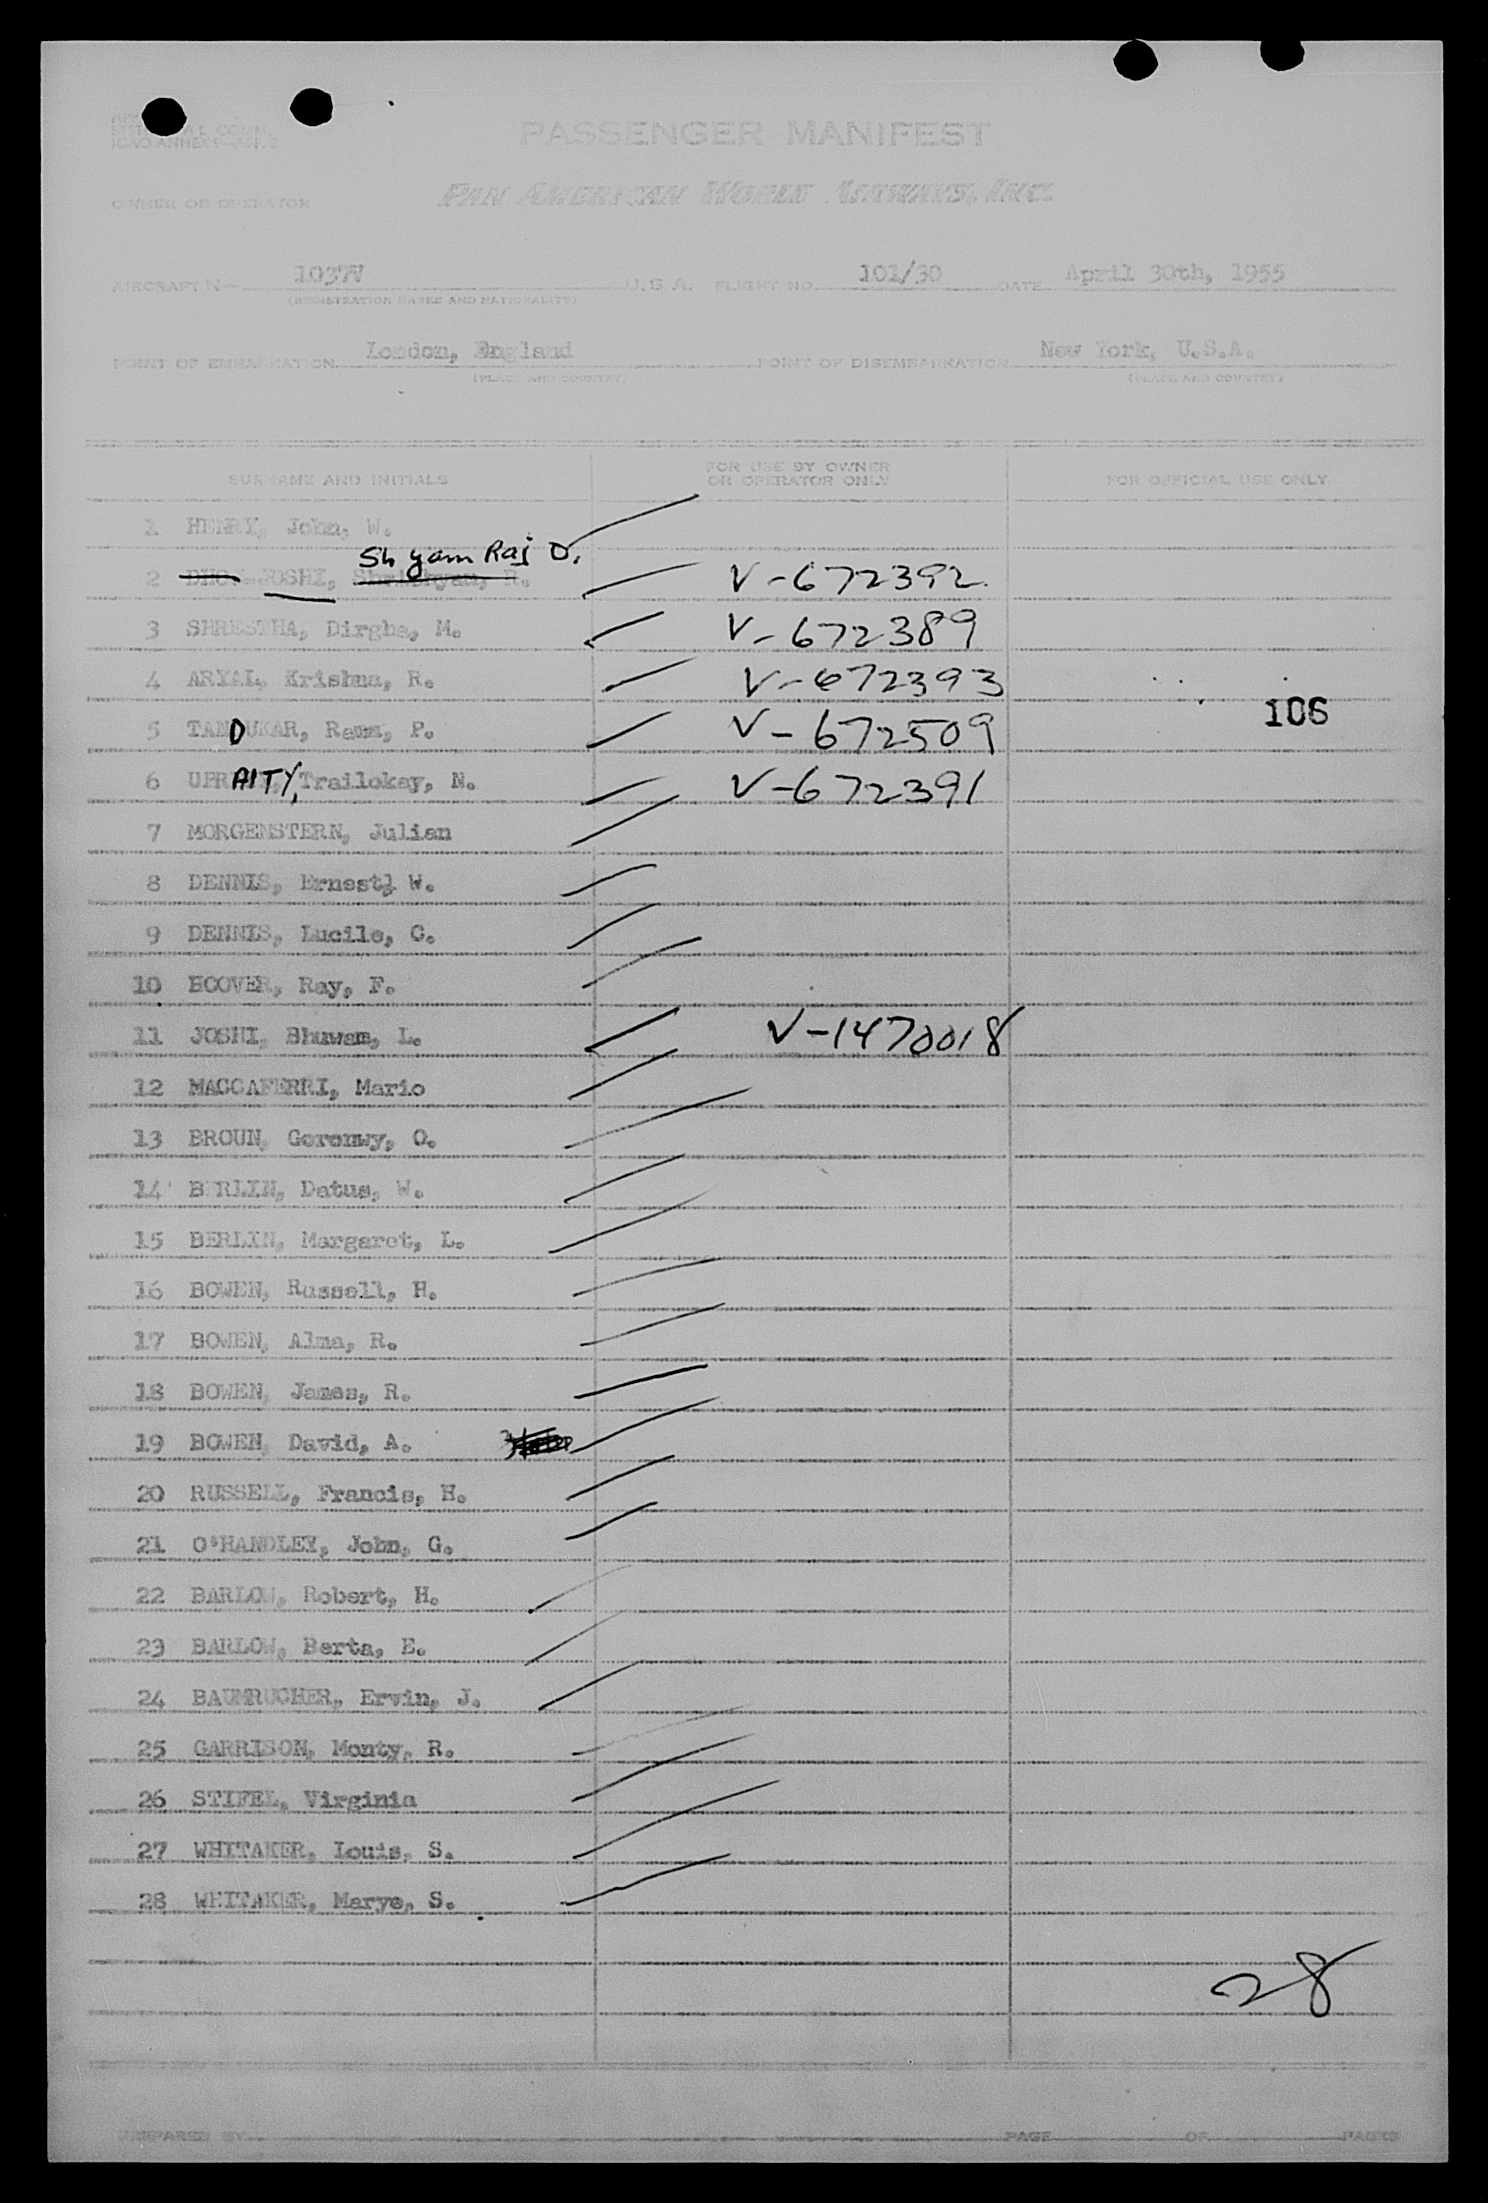 PASSENGER MANIFEST
OWNER OR OPERATOR
PAN AMERICAN WORLD AIRWAYS, INC.
AIRCRAFT N- 1037V U.S.A. FLIGHT NO. 101/30 DATE April 30th, 1955
(REGISTRATION MARKS AND NATIONALITY)
POINT OF EMBARKATION London, England POINT OF DISEMBARKATION New York, U.S.A.
(PLACE AND COUNTRY) (PLACE AND COUNTRY)
SURNAME AND INITIALS FOR USE BY OWNER OR OPERATOR ONLY FOR OFFICIAL USE ONLY
1 HENRY, John, W.
Shyam Raj D.
2 JOSHI, R. V-672392
3 SHRESTHA, Dirgha, M. V-672389
4 ARYAL, Krishna, R. V-672393
106
5 TANDUKAR, Rama, P. V-672509
6 UPRAITY, Trailokay, N. V-672391
7 MORGENSTERN, Julian
8 DENNIS, Ernest, W.
9 DENNIS, Lucile, C.
10 HOOVER, Ray, F.
11 JOSHI, Bhuwan, L. V-1470018
12 MACCAFERRI, Mario
13 BROUN, Goronwy, O.
14 BERLIN, Datus, W.
15 BERLIN, Margaret, L.
16 BOWEN, Russell, H.
17 BOWEN, Alma, R.
18 BOWEN, James, R.
19 BOWEN, David, A.
20 RUSSELL, Francis, H.
21 O'HANDLEY, John, G.
22 BARLOW, Robert, H.
23 BARLOW, Berta, E.
24 BAUMRUCHER, Ervin, J.
25 GARRISON, Monty, R.
26 STIFEL, Virginia
27 WHITAKER, Louis, S.
28 WHITAKER, Marye, S.
28
PREPARED BY PAGE OF PAGES